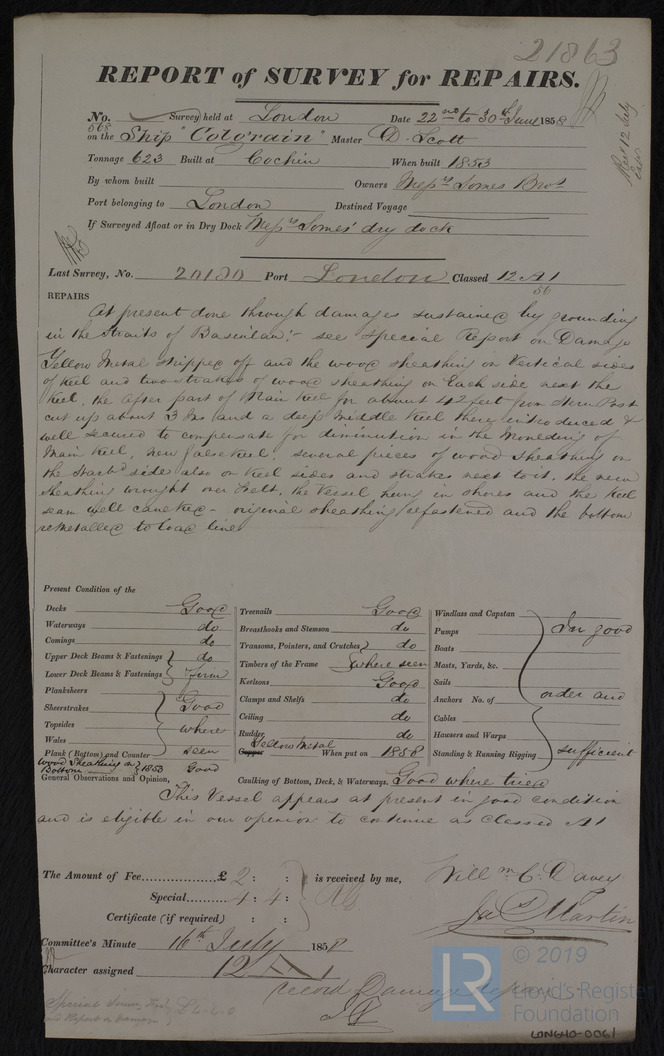 21863
REPORT of SURVEY for REPAIRS.
No. 568 Survey held at London Date 22nd to 30th June 1858
on the Ship "Coterain" Master D. Scott
Tonnage 623 Built at Cochin When built 1853
By whom built Owners Messrs Somes Bros
Port belonging to London Destined Voyage
If Surveyed Afloat or in Dry Dock Messrs Somes' dry dock
Rec 12 July
Last Survey, No. 20180 Port London Classed 12 A1
56
REPAIRS
At present done through damages sustained by grounding
in the Straits of Basinlan:- see special Report on Damage
Yellow Metal stripped off and the wood sheathing on Vertical sides
of Keel and two strakes of wood sheathing on Each side next the
Keel, the after part of Main Keel for about 42 feet from Stern Post
cut up about 3 Ins and a deep middle Keel there introduced &
well secured to compensate for diminution in the Moulding of
Main Keel, New false Keel, several pieces of wood sheathing on
the Starbd side also on Keel sides and strakes next to it, the new
sheathing wrought over Felt, the Vessel hung in shores and the Keel
seam well caulked - original sheathing refastened and the bottom
remetalled to load line
Present Condition of the
Decks Good
Waterways do
Comings do
Upper Deck Beams & Fastenings do
Lower Deck Beams & Fastenings firm
Planksheers
Sheerstrakes Good
Topsides where
Wales
Plank (Bottom) and Counter seen
Wood Sheathing on Bottom 1853 Good
Treenails Good
Breasthooks and Stemson do
Transoms, Pointers, and Crutches do
Timbers of the Frame where seen
Keelsons Good
Clamps and Shelfs do
Ceiling do
Rudder do
Yellow Metal
Copper When put on 1858
Caulking of Bottom, Deck, & Waterways. Good where tried
Windlass and Capstan
Pumps In good
Boats
Masts, Yards, &c.
Sails
Anchors No. of order and
Cables
Hausers and Warps
Standing & Running Rigging sufficient
General Observations and Opinion,
This Vessel appears at present in good condition
and is eligible in our opinion to continue as Classed A1
The Amount of Fee £ 2 : : is received by me,
Special 4 : 4 :
Certificate (if required) : :
Willm C. Davey
Jas Martin
Committee's Minute 16th July 1858
Character assigned 12 A 1
record Damage repairs
Special Survey £4.4.0
and Report on Damage
LR © 2019
Lloyd's Register
Foundation
LON640-0061